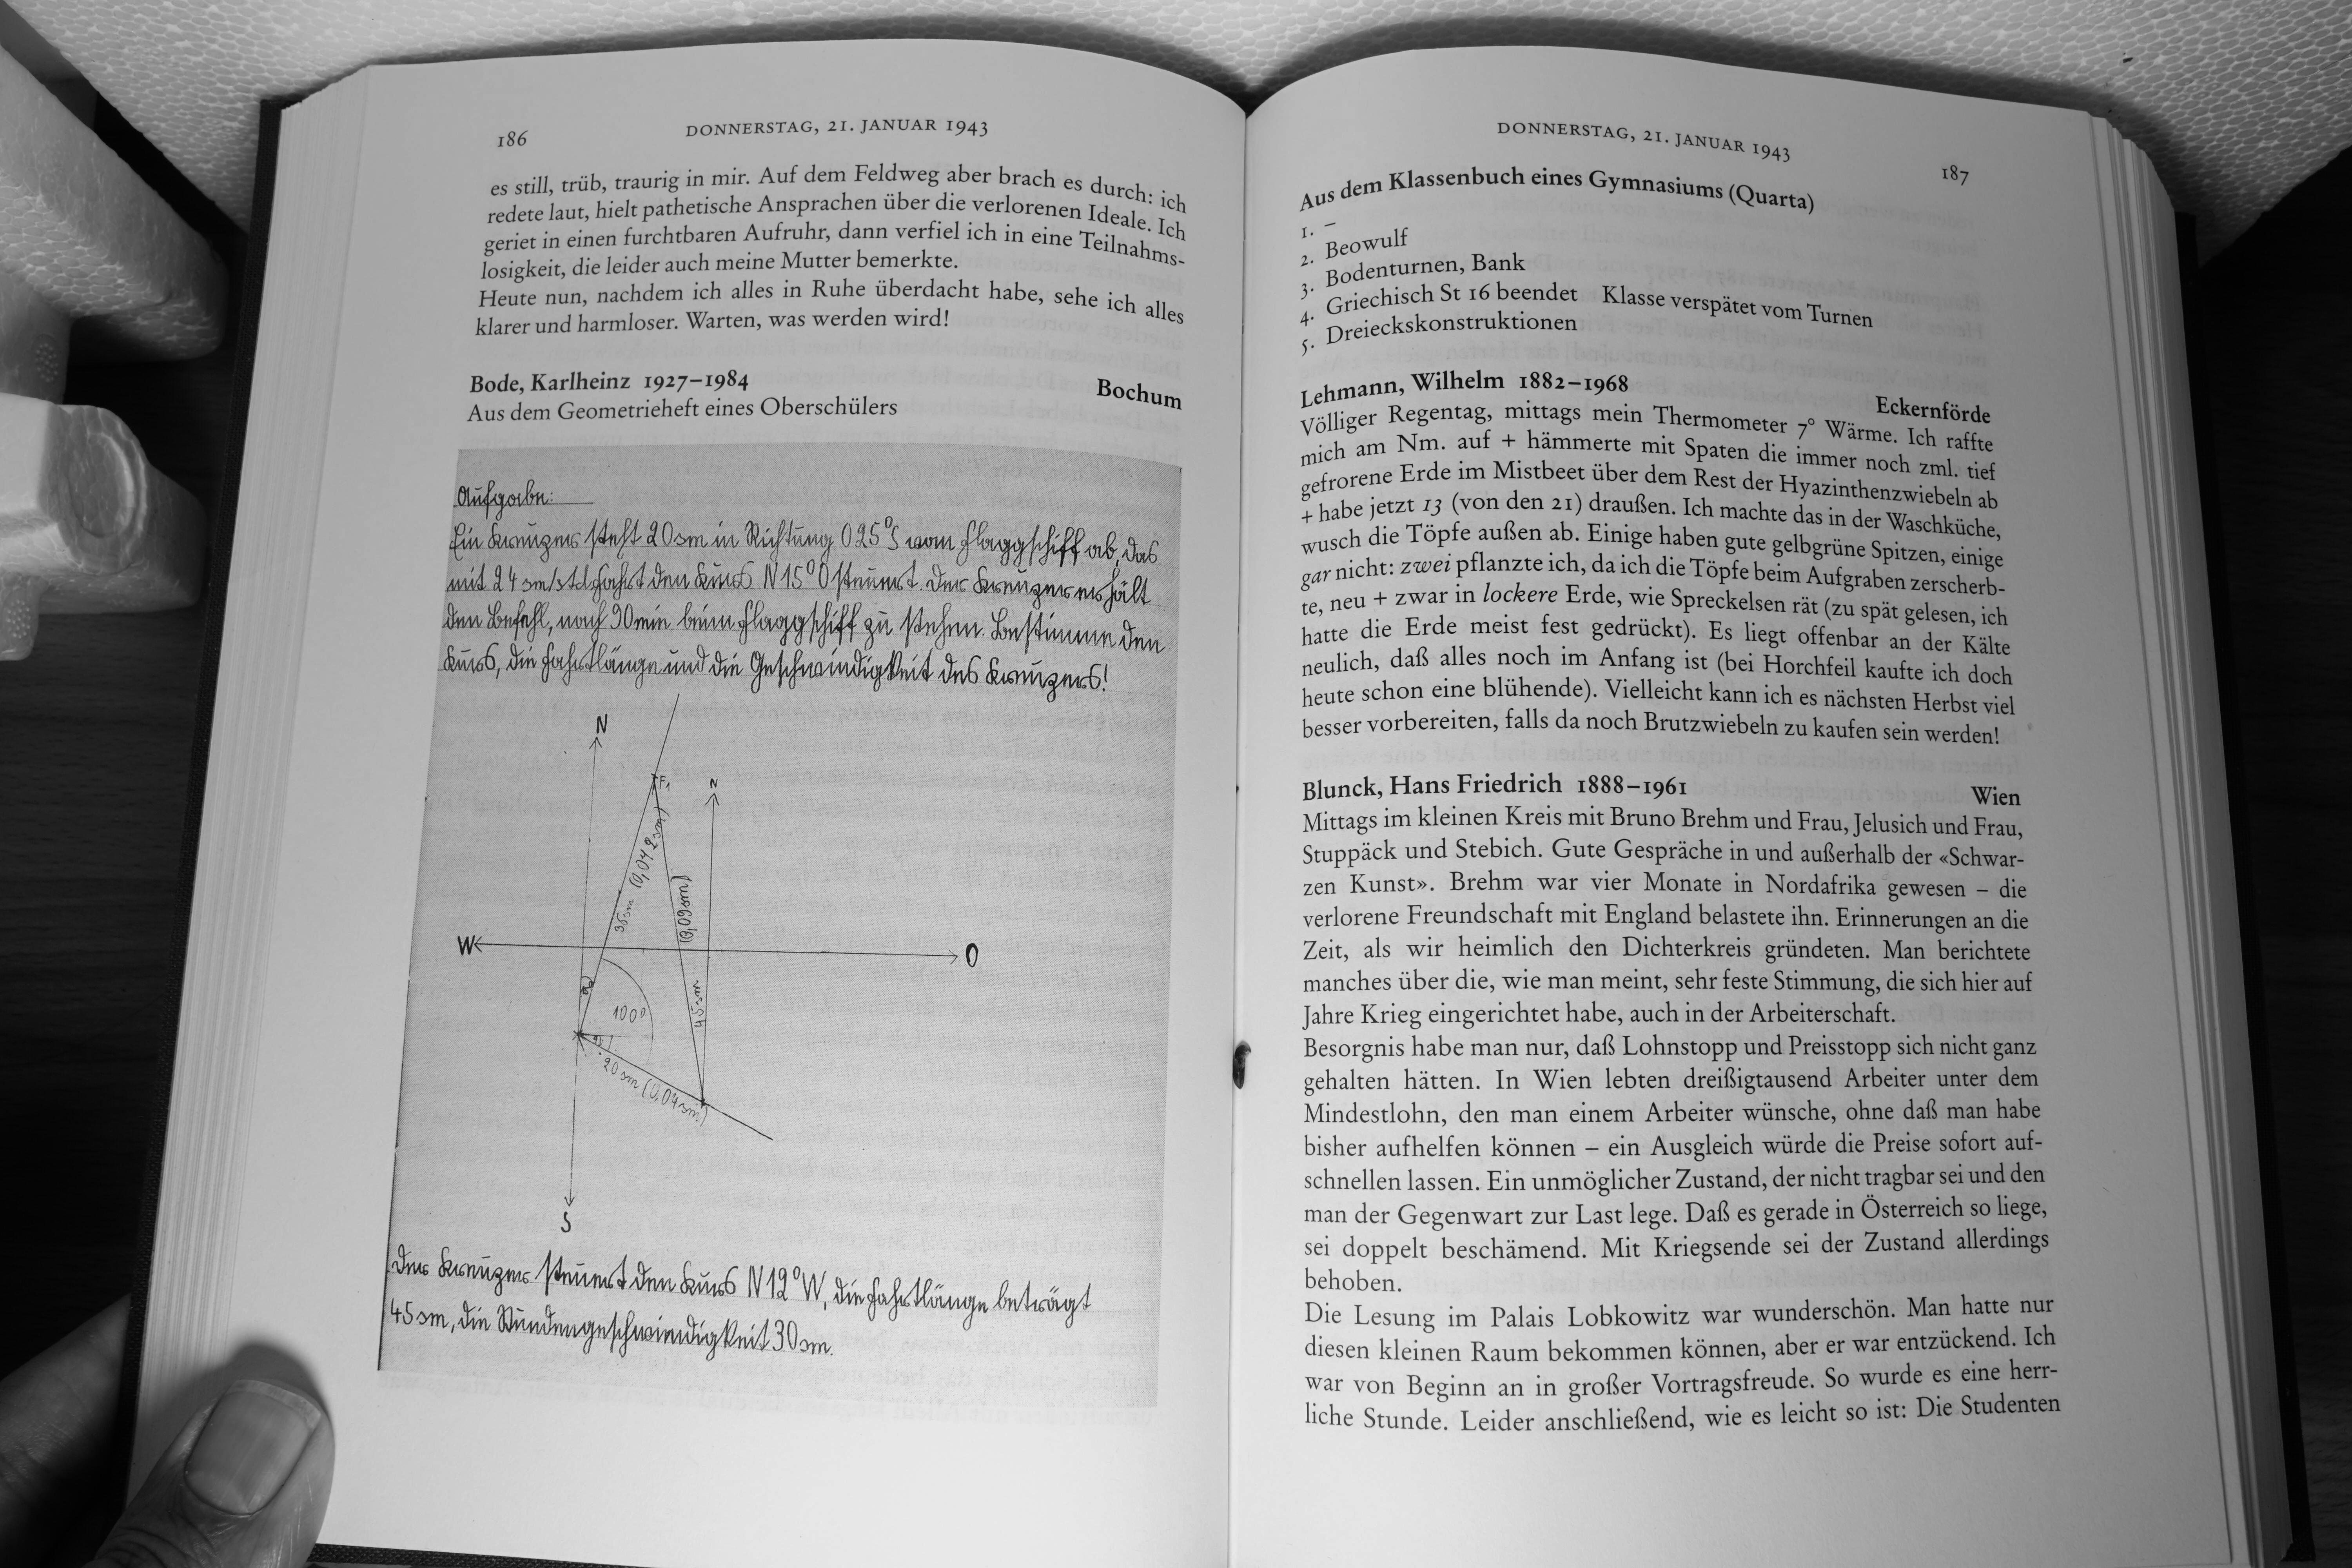 186
DONNERSTAG, 21. JANUAR 1943
es still, trüb, traurig in mir. Auf dem Feldweg aber brach es durch: ich
redete laut, hielt pathetische Ansprachen über die verlorenen Ideale. Ich
geriet in einen furchtbaren Aufruhr, dann verfiel ich in eine Teilnahms-
losigkeit, die leider auch meine Mutter bemerkte.
Heute nun, nachdem ich alles in Ruhe überdacht habe, sehe ich alles
klarer und harmloser. Warten, was werden wird!
Bode, Karlheinz 1927–1984 Bochum
Aus dem Geometrieheft eines Oberschülers
Aufgabe:
Ein Kreuzer steht 20 sm in Richtung O 25° S vom Flaggschiff ab, das
mit 24 sm/std Fahrt den Kurs N 15° O steuert. Der Kreuzer erhält
den Befehl, nach 90 min beim Flaggschiff zu stehen. Bestimme den
Kurs, die Fahrtlänge und die Geschwindigkeit des Kreuzers!
N
F₁
N
36 sm (0,042 sm)
(0,09 sm)
W
O
45 sm
100°
20 sm (0,04 sm)
S
Der Kreuzer steuert den Kurs N 12° W, die Fahrtlänge beträgt
45 sm, die Stundengeschwindigkeit 30 sm.
DONNERSTAG, 21. JANUAR 1943
187
Aus dem Klassenbuch eines Gymnasiums (Quarta)
1. –
2. Beowulf
3. Bodenturnen, Bank
4. Griechisch St 16 beendet Klasse verspätet vom Turnen
5. Dreieckskonstruktionen
Lehmann, Wilhelm 1882–1968 Eckernförde
Völliger Regentag, mittags mein Thermometer 7° Wärme. Ich raffte
mich am Nm. auf + hämmerte mit Spaten die immer noch zml. tief
gefrorene Erde im Mistbeet über dem Rest der Hyazinthenzwiebeln ab
+ habe jetzt 13 (von den 21) draußen. Ich machte das in der Waschküche,
wusch die Töpfe außen ab. Einige haben gute gelbgrüne Spitzen, einige
gar nicht: zwei pflanzte ich, da ich die Töpfe beim Aufgraben zerscherb-
te, neu + zwar in lockere Erde, wie Spreckelsen rät (zu spät gelesen, ich
hatte die Erde meist fest gedrückt). Es liegt offenbar an der Kälte
neulich, daß alles noch im Anfang ist (bei Horchfeil kaufte ich doch
heute schon eine blühende). Vielleicht kann ich es nächsten Herbst viel
besser vorbereiten, falls da noch Brutzwiebeln zu kaufen sein werden!
Blunck, Hans Friedrich 1888–1961 Wien
Mittags im kleinen Kreis mit Bruno Brehm und Frau, Jelusich und Frau,
Stuppäck und Stebich. Gute Gespräche in und außerhalb der «Schwar-
zen Kunst». Brehm war vier Monate in Nordafrika gewesen – die
verlorene Freundschaft mit England belastete ihn. Erinnerungen an die
Zeit, als wir heimlich den Dichterkreis gründeten. Man berichtete
manches über die, wie man meint, sehr feste Stimmung, die sich hier auf
Jahre Krieg eingerichtet habe, auch in der Arbeiterschaft.
Besorgnis habe man nur, daß Lohnstopp und Preisstopp sich nicht ganz
gehalten hätten. In Wien lebten dreißigtausend Arbeiter unter dem
Mindestlohn, den man einem Arbeiter wünsche, ohne daß man habe
bisher aufhelfen können – ein Ausgleich würde die Preise sofort auf-
schnellen lassen. Ein unmöglicher Zustand, der nicht tragbar sei und den
man der Gegenwart zur Last lege. Daß es gerade in Österreich so liege,
sei doppelt beschämend. Mit Kriegsende sei der Zustand allerdings
behoben.
Die Lesung im Palais Lobkowitz war wunderschön. Man hatte nur
diesen kleinen Raum bekommen können, aber er war entzückend. Ich
war von Beginn an in großer Vortragsfreude. So wurde es eine herr-
liche Stunde. Leider anschließend, wie es leicht so ist: Die Studenten